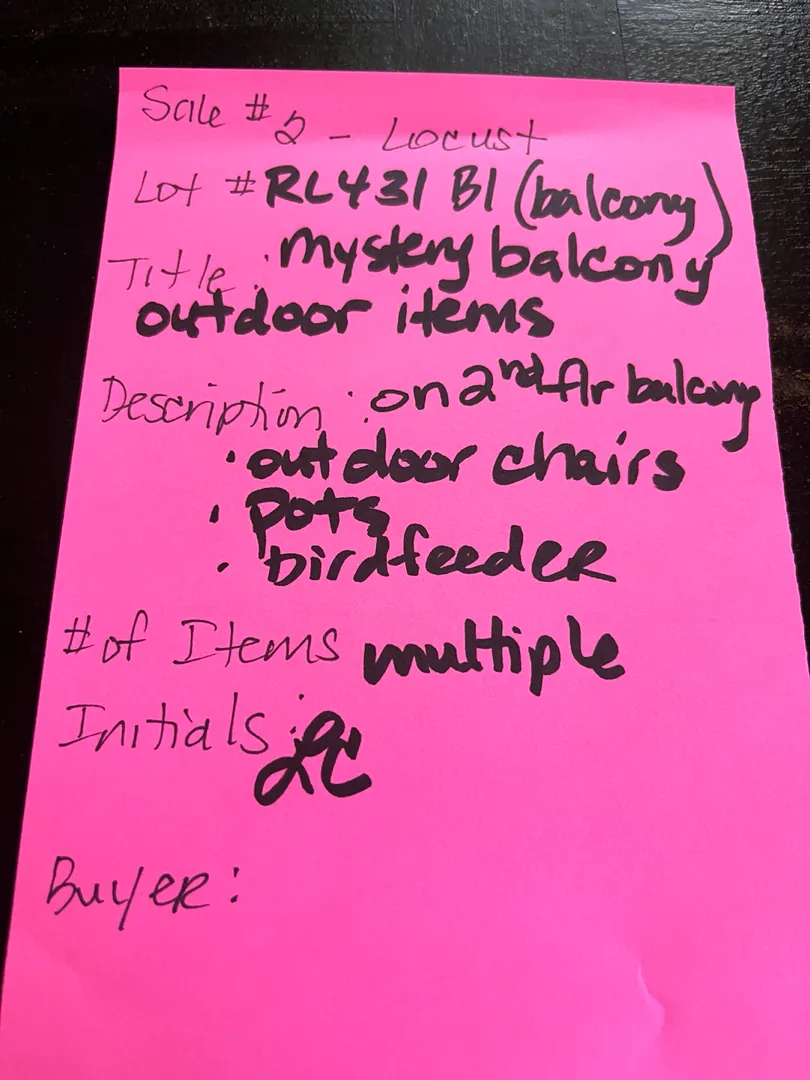 Sale # 2 - Locust
Lot # RL431 B1 (balcony)
Title: mystery balcony
outdoor items
Description: on 2nd flr balcony
• outdoor chairs
• pots
• birdfeeder
# of Items multiple
Initials:
Buyer: